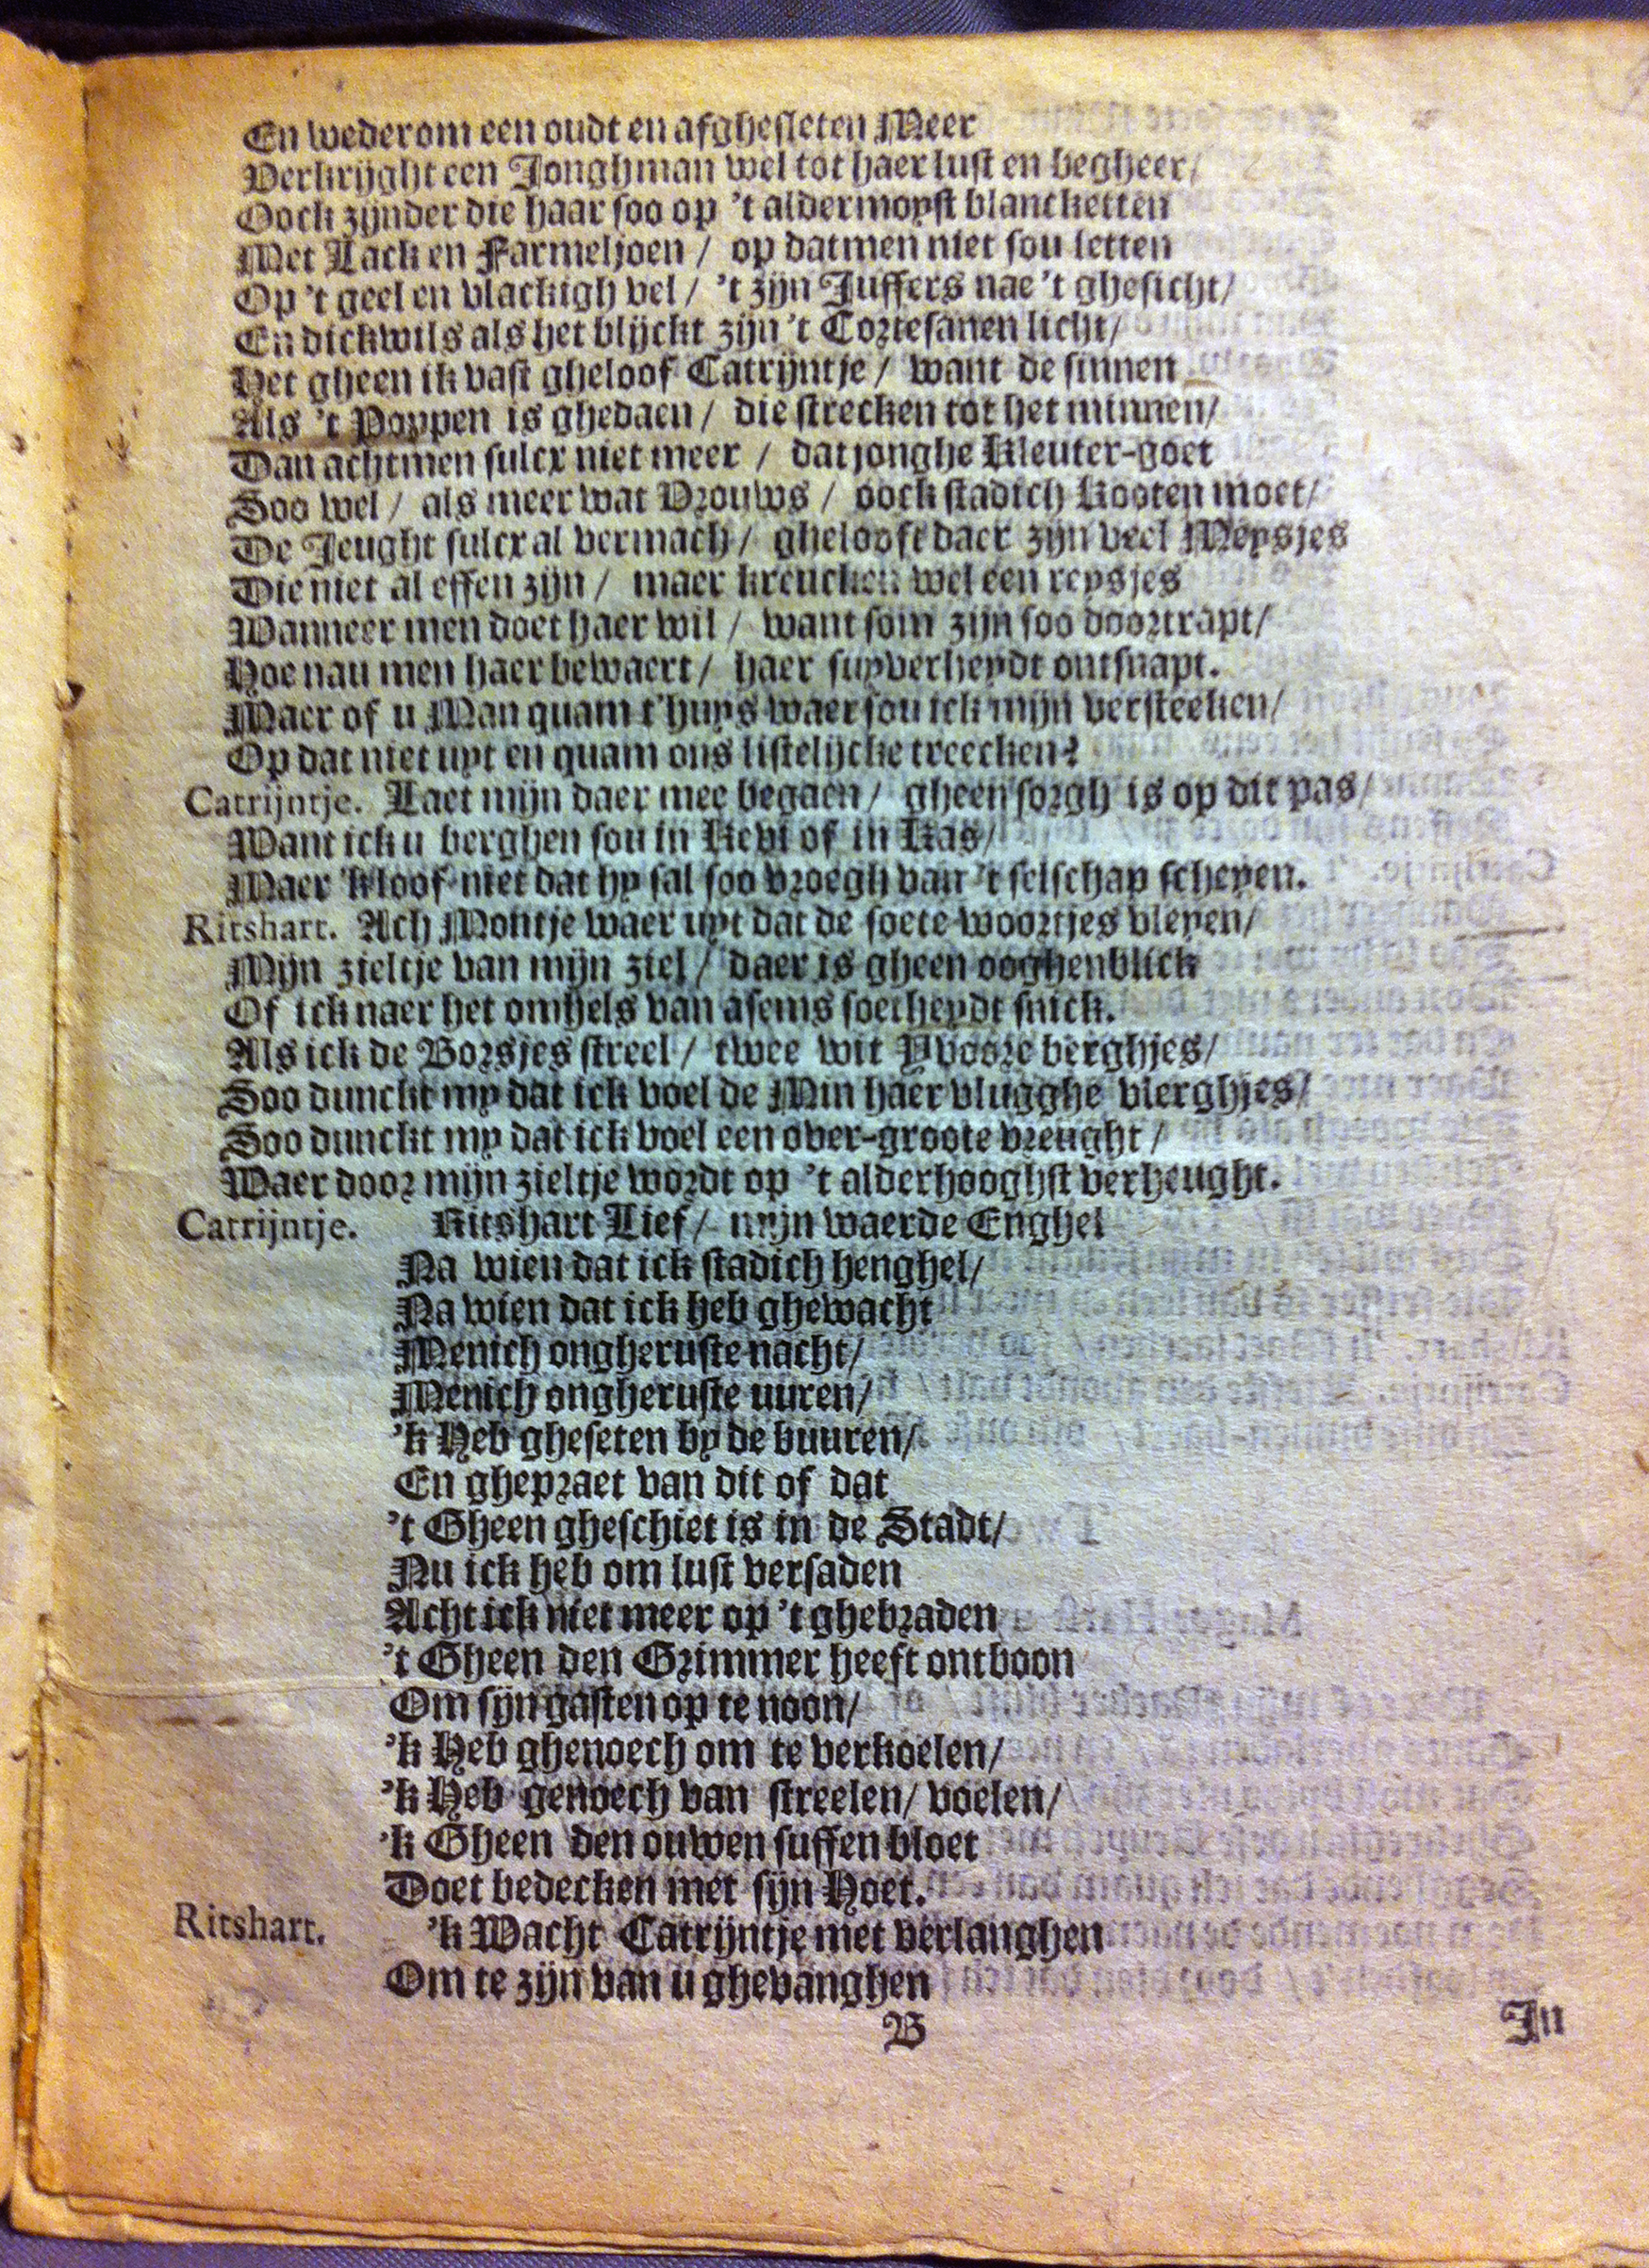 En wederom een oudt en afghesleten Meer
Verkrijght een Jonghman wel tot haer lust en begheer/
Oock zijnder die haar soo op 't aldermoyst blancketten
Met Lack en Farmeljoen / op datmen niet sou letten
Op 't geel en vlackigh vel / 't zijn Juffers nae 't ghesicht/
En dickwils als het blijckt zijn 't Cortesanen licht/
Het gheen ik vast gheloof Catrijntje / want de sinnen
Als 't Poppen is ghedaen / die strecken tot het minnen/
Dan achtmen sulcx niet meer / dat jonghe Kleuter-goet
Soo wel / als meer wat Vrouws / oock stadich kooten moet/
De Jeught sulcx al vermach / ghelooft daer zijn veel Meysjes
Die niet al effen zijn / maer kreucken wel een reysjes
Wanneer men doet haer wil / want som zijn soo doortrapt/
Hoe nau men haer bewaert / haer suyverheydt ontsnapt.
Maer of u Man quam t'huys waer sou ick mijn versteeken/
Op dat niet uyt en quam ons listelijcke treecken?
Catrijntje. Laet mijn daer mee begaen / gheen sorgh is op dit pas/
Want ick u berghen sou in Kevi of in Kas/
Maer 'k loof niet dat hy sal soo vroegh van 't selschap scheyen.
Ritshart. Ach Montje waer uyt dat de soete woortjes vleyen/
Mijn zieltje van mijn ziel / daer is gheen ooghenblick
Of ick naer het omhels van asems soetheydt snick.
Als ick de Borsjes streel / twee wit Yvoore berghjes/
Soo dunckt my dat ick voel de Min haer vlugghe vlerghjes/
Soo dunckt my dat ick voel een over-groote vreught /
Waer door mijn zieltje wordt op 't alderhooghst verheught.
Catrijntje. Ritshart Lief / mijn waerde Enghel
Na wien dat ick stadich henghel/
Na wien dat ick heb ghewacht
Menich ongheruste nacht/
Menich ongheruste uuren/
'k Heb gheseten by de buuren/
En ghepraet van dit of dat
't Gheen gheschiet is in de Stadt/
Nu ick heb om lust versaden
Acht ick niet meer op 't ghebraden
't Gheen den Grimmer heeft ontboon
Om sijn gasten op te noon/
'k Heb ghenoech om te verkoelen/
'k Heb genoech van streelen/ voelen/
'k Gheen den ouwen suffen bloet
Doet bedecken met sijn Hoet.
Ritshart. 'k Wacht Catrijntje met verlanghen
Om te zijn van u ghevanghen
B
In